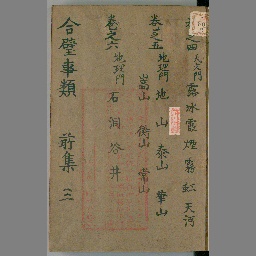 卷之四 天文門 露 冰 霞 煙 霧 虹 天河
卷之五 地理門 地 山 泰山 華山
嵩山 衡山 常山
卷之六 地理門 石 洞 谷 井
合璧事類 前集 二